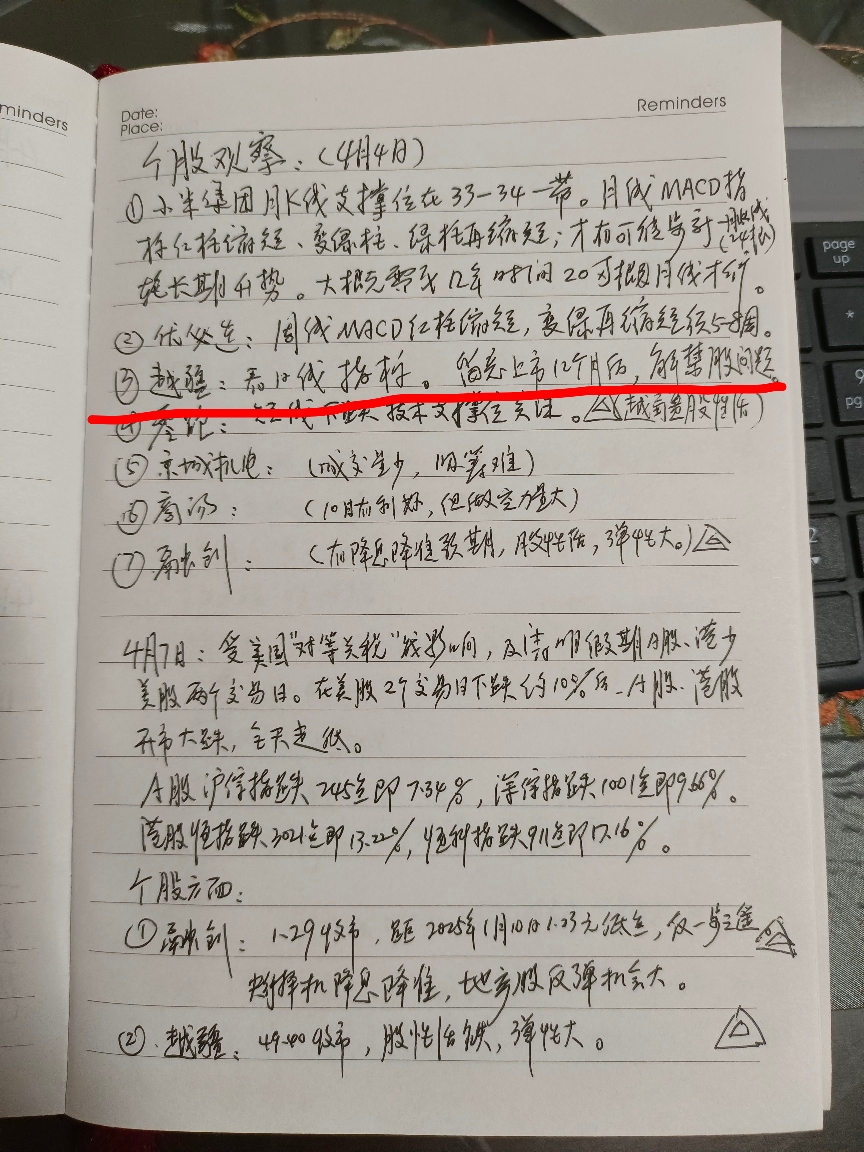 minders
Date:
Place:
Reminders
个股观察：(4月4日)
①小米集团月K线支撑位在33-34一带。月线MACD指
标红柱缩短、变绿柱、绿柱再缩短；才有可能
延长期升势。大概需 时间20 根月线才行。
②优必选：周线MACD红柱缩短，变绿再缩短须5-8周。
③越疆：看日线指标。留意上市12个月后，解禁股问题。
短线下跌技术支撑位 。(越疆股性活)
⑤京城机电：(成交量少，吸筹难)
⑥商汤：(10月有利好，但做空力量大)
⑦融创：(有降息降准预期，股性活，弹性大。)
4月7日：受美国"对等关税"战影响，及清明假期A股、港少
美股两个交易日。在美股2个交易日下跌约10%后、A股、港股
开市大跌，全天走低。
A股沪综指跌245点即7.34%，深综指跌1001点即9.66%。
港股恒指跌3021点即13.22%，恒科指跌911点即17.16%。
个股方面：
①融创：1.29收市，距2025年1月10日1.23元低点，仅一步之遥
择机降息降准，地产股反弹机会大。
②越疆：49.40收市，股性活跃，弹性大。
page
up
*
9
pg
2